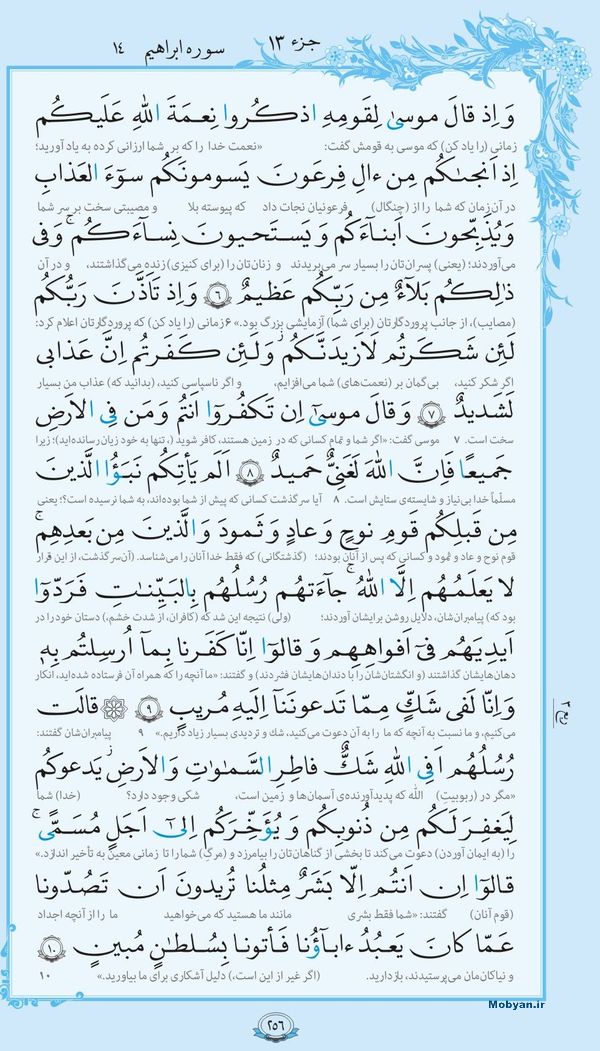 جزء ۱۳ سوره ابراهیم ۱۴
وَ اِذ قالَ موسیٰ لِقَومِهِ اذکُروا نِعمَةَ اللهِ عَلَیکُم
زمانی (را یاد کن) که موسی به قومش گفت: «نعمت خدا را که بر شما ارزانی کرده به یاد آورید؛
اِذ اَنجىٰکُم مِن ءالِ فِرعَونَ یَسومونَکُم سوٓءَ العَذابِ
در آن زمان که شما را از (چنگال) فرعونیان نجات داد که پیوسته بلا و مصیبتی سخت بر سر شما
وَ یُذَبِّحونَ اَبنآءَکُم وَ یَستَحیونَ نِسآءَکُم ۚ وَ فی
می‌آوردند؛ (یعنی) پسران‌تان را بسیار سر می‌بریدند و زنان‌تان را (برای کنیزی) زنده می‌گذاشتند، و در آن
ذٰلِکُم بَلآءٌ مِن رَبِّکُم عَظیمٌ ۶ وَ اِذ تَاَذَّنَ رَبُّکُم
(مصایب)، از جانب پروردگارتان (برای شما) آزمایشی بزرگ بود.» ۶ زمانی (را یاد کن) که پروردگارتان اعلام کرد:
لَئِن شَکَرتُم لَاَزیدَنَّکُم ۖ وَ لَئِن کَفَرتُم اِنَّ عَذابی
اگر شکر کنید، بی‌گمان بر (نعمت‌های) شما می‌افزایم، و اگر ناسپاسی کنید، (بدانید که) عذاب من بسیار
لَشَدیدٌ ۷ وَ قالَ موسیٰٓ اِن تَکفُرُوٓا اَنتُم وَ مَن فِی الاَرضِ
سخت است. ۷ موسی گفت: «اگر شما و تمام کسانی که در زمین هستند، کافر شوید (، تنها به خود زیان رسانده‌اید)؛ زیرا
جَمیعًا فَاِنَّ اللهَ لَغَنِیٌّ حَمیدٌ ۸ اَلَم یَأتِکُم نَبَؤُا الَّذینَ
مسلّماً خدا بی‌نیاز و شایسته‌ی ستایش است. ۸ آیا سرگذشت کسانی که پیش از شما بوده‌اند، به شما نرسیده است؟؛ یعنی
مِن قَبلِکُم قَومِ نوحٍ وَ عادٍ وَ ثَمودَ وَ الَّذینَ مِن بَعدِهِم ۚ
قوم نوح و عاد و ثمود و کسانی که پس از آنان بودند؛ (گذشتگانی) که فقط خدا آنان را می‌شناسد. (آن سرگذشت، از این قرار
لا یَعلَمُهُم اِلَّا اللهُ ۚ جآءَتهُم رُسُلُهُم بِالبَیِّنٰتِ فَرَدّوٓا
بود که) پیامبران‌شان، دلایل روشن برایشان آوردند؛ (ولی) نتیجه این شد که (کافران، از شدت خشم،) دستان خود را در
اَیدِیَهُم فیٓ اَفواهِهِم وَ قالوٓا اِنّا کَفَرنا بِمآ اُرسِلتُم بِهٖ
دهان‌هایشان گذاشتند (و انگشتان‌شان را با دندان‌هایشان فشردند) و گفتند: «ما آنچه را که همراه آن فرستاده شده‌اید، انکار
وَ اِنّا لَفی شَکٍّ مِمّا تَدعونَنآ اِلَیهِ مُریبٍ ۹ قالَت
می‌کنیم، و ما نسبت به آنچه که ما را به آن دعوت می‌کنید، شك و تردیدی بسیار زیاد داریم.» ۹ پیامبران‌شان گفتند:
رُسُلُهُم اَفِی اللهِ شَکٌّ فاطِرِ السَّمٰوٰتِ وَ الاَرضِ ۖ یَدعوکُم
«مگر در (ربوبیتِ) الله که پدیدآورنده‌ی آسمان‌ها و زمین است، شکی وجود دارد؟ (خدا) شما
لِیَغفِرَ لَکُم مِن ذُنوبِکُم وَ یُؤَخِّرَکُم اِلیٰٓ اَجَلٍ مُسَمًّی ۚ
را (به ایمان آوردن) دعوت می‌کند تا بخشی از گناهان‌تان را بیامرزد و (مرگِ) شما را تا زمانی معین به تأخیر اندازد.»
قالوٓا اِن اَنتُم اِلّا بَشَرٌ مِثلُنا تُریدونَ اَن تَصُدّونا
(قوم آنان) گفتند: «شما فقط بشری مانند ما هستید که می‌خواهید ما را از آنچه اجداد
عَمّا کانَ یَعبُدُ ءابآؤُنا فَأتونا بِسُلطٰنٍ مُبینٍ ۱۰
و نیاکان‌مان می‌پرستیدند، بازدارید. (اگر غیر از این است،) دلیل آشکاری برای ما بیاورید.» ۱۰
۲۵۶
Mobyan.ir